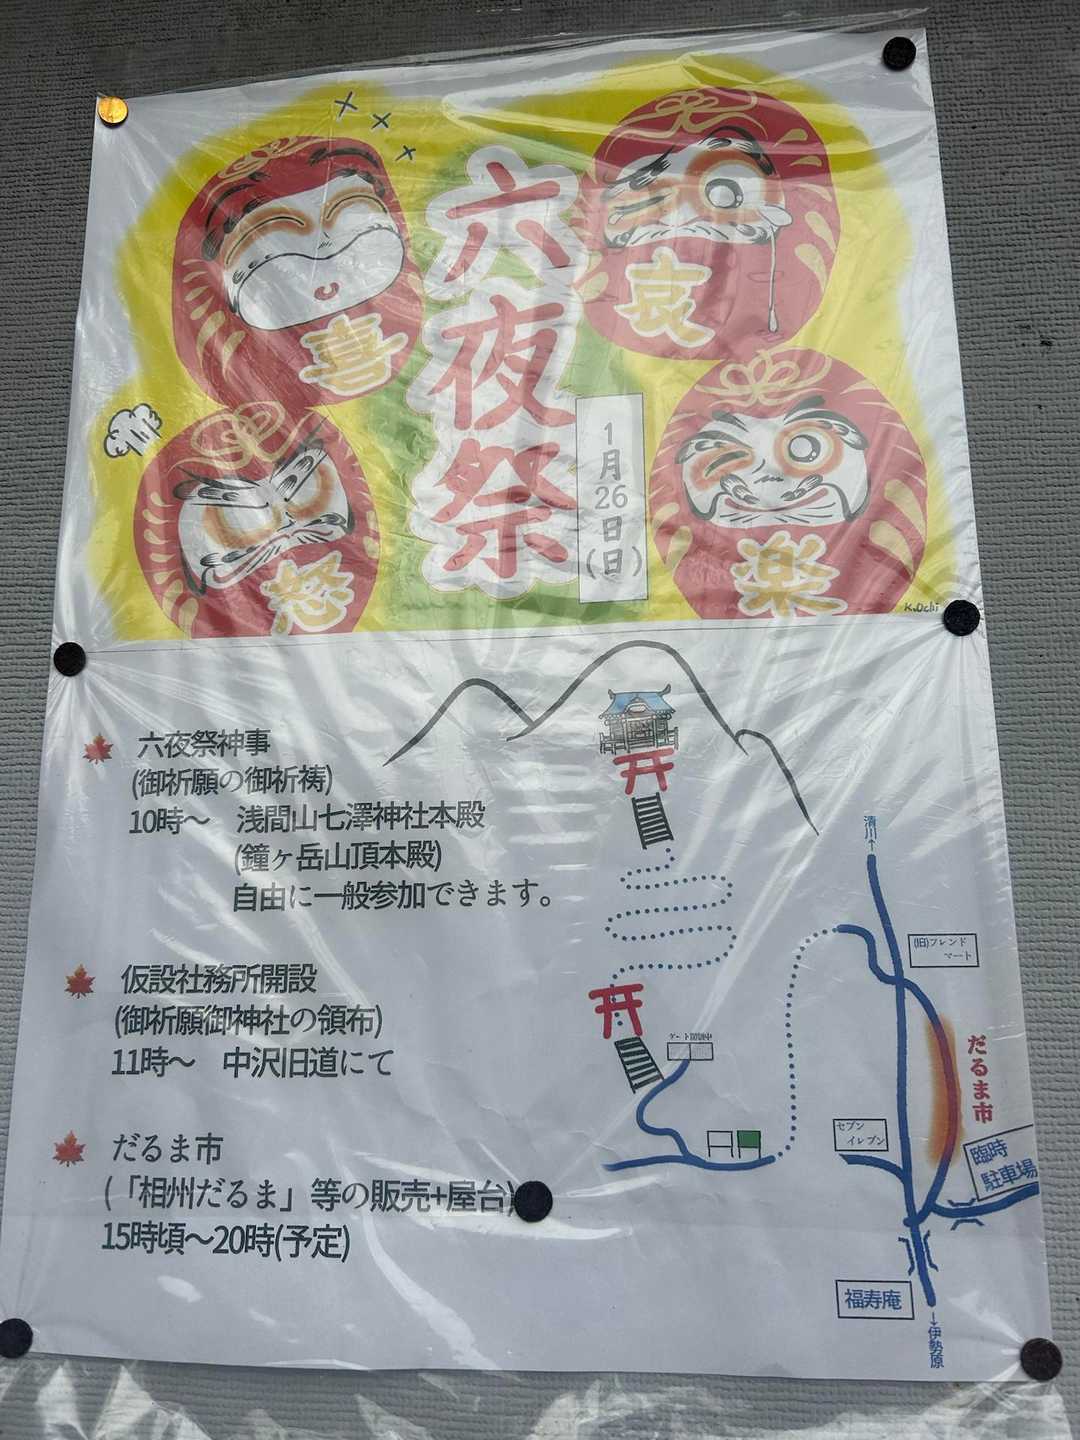 喜
怒
六夜祭
1月26日(日)
哀
楽
K.Ochi
六夜祭神事
(御祈願の御祈祷)
10時～ 浅間山七澤神社本殿
(鐘ヶ岳山頂本殿)
自由に一般参加できます。
仮設社務所開設
(御祈願御神社の頒布)
11時～ 中沢旧道にて
だるま市
(「相州だるま」等の販売+屋台)
15時頃～20時(予定)
清川→
(旧)フレンド
マート
だるま市
セブン
イレブン
臨時
駐車場
福寿庵
→伊勢原